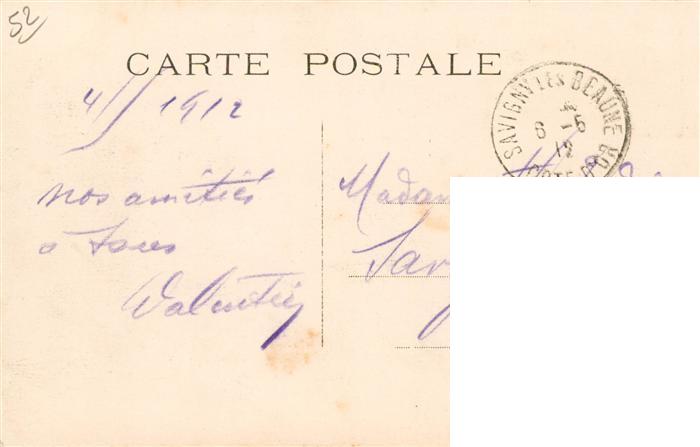 52
CARTE POSTALE
SAVIGNY LES BEAUNE
6 -5
12
CÔTE D'OR
4/5 1912
nos amitiés
à tous
Valentin
Madam
Sav